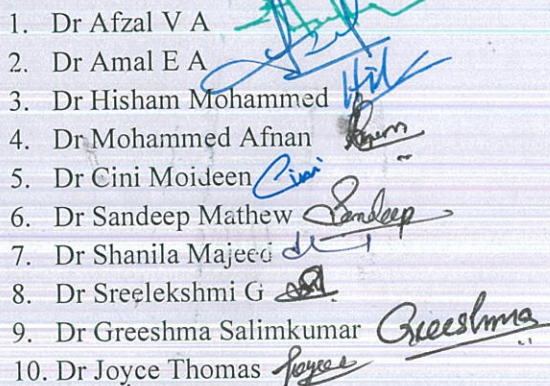 1. Dr Afzal V A
2. Dr Amal E A
3. Dr Hisham Mohammed
4. Dr Mohammed Afnan
5. Dr Cini Moideen Cini
6. Dr Sandeep Mathew Sandeep
7. Dr Shanila Majeed
8. Dr Sreelekshmi G
9. Dr Greeshma Salimkumar Greeshma
10. Dr Joyce Thomas Joyce